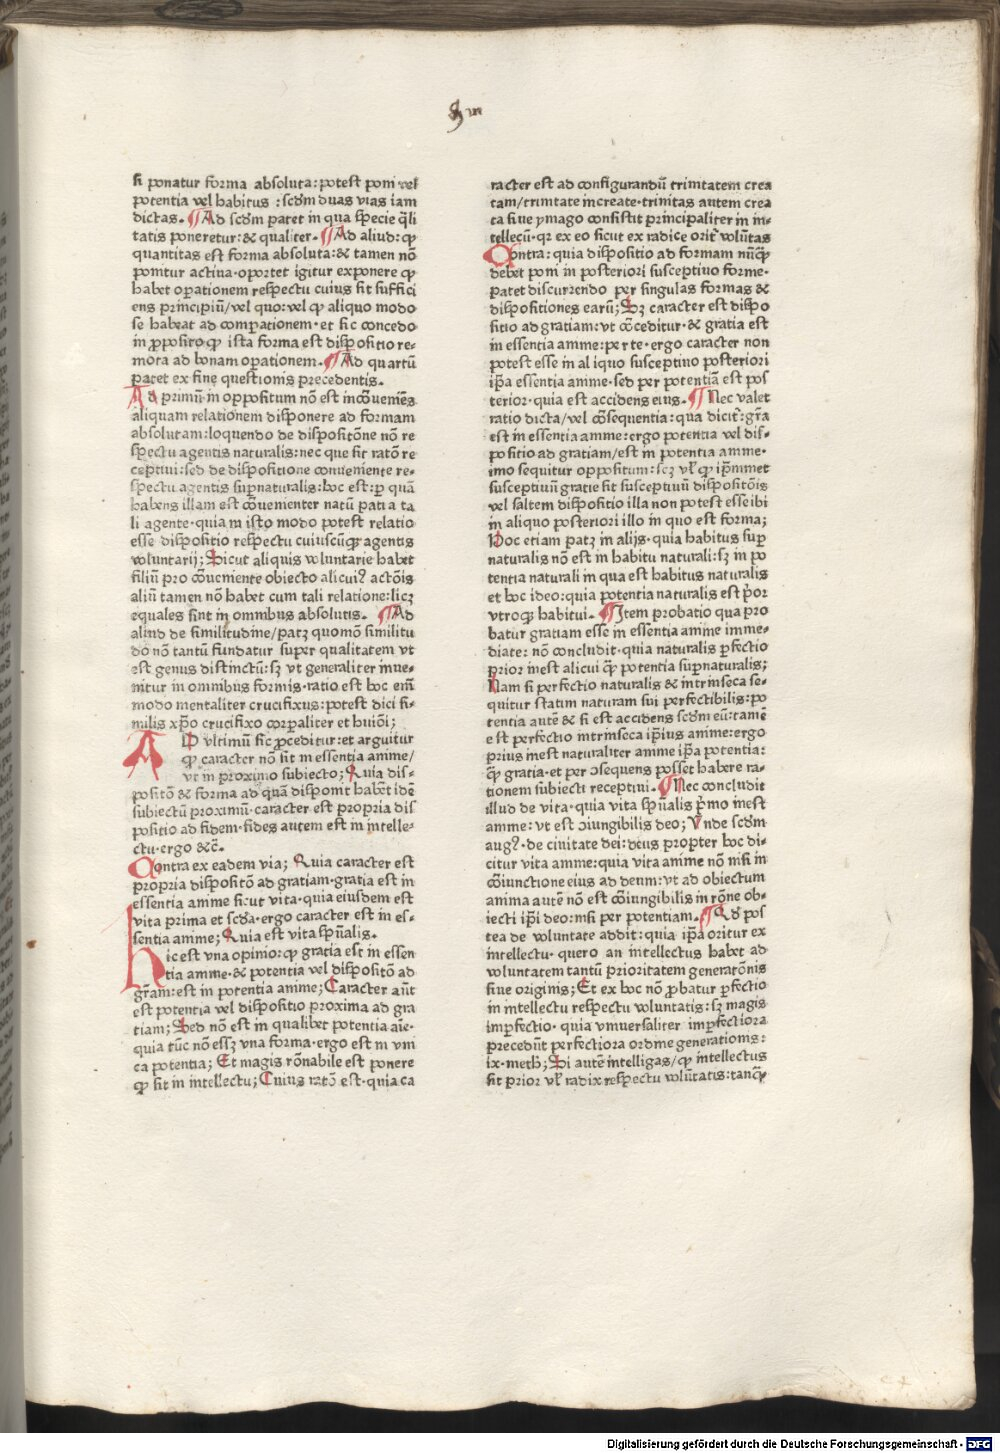 si ponatur forma absoluta: potest poni vel
potentia vel habitus : scđm duas vias iam
dictas. ¶Ad scđm patet in qua specie q̃li
tatis poneretur: & qualiter. ¶Ad aliud: qꝫ
quantitas est forma absoluta: & tamen nō
ponitur actiua. oportet igitur exponere ꝙ
habet operationem respectu cuius sit suffici
ens principiū/vel quo: vel ꝙ aliquo modo
se habeat ad comparationem. et sic concedo
in ꝓposito ꝙ ista forma est dispositio re-
mota ad bonam operationem. ¶Ad quartū
patet ex fine questionis precedentis.
Ad primū in oppositum nō est incōueniēs
aliquam relationem disponere ad formam
absolutam: loquendo de dispositōne nō re
spectu agentis naturalis: nec que sit ratōe re
ceptiui: sed de dispositione conueniente re-
spectu agentis supernaturalis: hoc est: ꝑ quā
habens illam est cōuenienter natū pati a ta
li agente. quia in isto modo potest relatio
esse dispositio respectu cuiuscūqꝫ agentis
voluntarij; Sicut aliquis voluntarie habet
filiū pro cōueniente obiecto alicuiꝰ actōis
aliū tamen nō habet cum tali relatione: licꝫ
equales sint in omnibus absolutis. ¶Ad
aliud de similitudine/patꝫ quomō similitu
do nō tantū fundatur super qualitatem vt
est genus distinctū: sꝫ vt generaliter inue-
nitur in omnibus formis. ratio est hoc eni
modo mentaliter crucifixus: potest dici si-
milis xp̄o crucifixo corꝑaliter et huiōi;
AD vltimū sic ꝓceditur: et arguitur
ꝙ caracter nō sit in essentia anime/
vt in proximo subiecto; Quia dis-
positō & forma ad quā disponit habēt idē
subiectū proximū. caracter est propria dis
positio ad fidem. fides autem est in intelle-
ctu. ergo &c̃.
Contra ex eadem via; Quia caracter est
propria dispositō ad gratiam. gratia est in
essentia anime sicut vita. quia eiusdem est
vita prima et scđa. ergo caracter est in es-
sentia anime; Quia est vita spūalis.
hic est vna opinio: ꝙ gratia est in essen
tia anime. & potentia vel dispositō ad
grām: est in potentia anime; Caracter aūt
est potentia vel dispositio proxima ad gra
tiam; Sed nō est in qualibet potentia aīe.
quia tūc nō essꝫ vna forma. ergo est in vni
ca potentia; Et magis rōnabile est ponere
ꝙ sit in intellectu; Cuius ratō est. quia ca
racter est ad configurandū trinitatem crea
tam/trinitate increate. trinitas autem crea
ta siue ymago consistit principaliter in in-
tellecū. qꝛ ex eo sicut ex radice orit̃ volūtas
Contra: quia dispositio ad formam nūqꝫ
debet poni in posteriori susceptiuo forme.
patet discurrendo per singulas formas &
dispositiones earū; Sꝫ caracter est dispo
sitio ad gratiam: vt cōceditur. & gratia est
in essentia anime: per te. ergo caracter non
potest esse in aliquo susceptiuo posteriori
ip̄a essentia anime. sed per potentiā est pos
terior. quia est accidens eius. ¶Nec valet
ratio dicta/vel cōsequentia: qua dicit̃: gr̄a
est in essentia anime: ergo potentia vel dis-
positio ad gratiam/est in potentia anime.
imo sequitur oppositum: scꝫ vl̃ ꝙ ip̄mmet
susceptiuū gratie sit susceptiuū dispositōis
vel saltem dispositio illa non potest esse ibi
in aliquo posteriori illo in quo est forma;
Hoc etiam patꝫ in alijs. quia habitus supꝛ
naturalis nō est in habitu naturali: sꝫ in po
tentia naturali in qua est habitus naturalis
et hoc ideo: quia potentia naturalis est pꝛior
vtroqꝫ habitui. ¶Item probatio qua pro
batur gratiam esse in essentia anime imme-
diate: nō concludit. quia naturalis ꝑfectio
prior inest alicui ꝗ̃ potentia supꝛnaturalis;
Nam si perfectio naturalis & intrinseca se-
quitur statim naturam sui perfectibilis: po
tentia autē & si est accidens scđm eū: tamē
est perfectio intrinseca ip̄ius anime: ergo
prius inest naturaliter anime ip̄a potentia:
ꝗ̃ gratia. et per ↄsequens posset habere ra-
tionem subiecti receptiui. ¶Nec concludit
illud de vita. quia vita spūalis pꝛmo inest
anime: vt est ↄiungibilis deo; Vnde scđm
augꝰ. de ciuitate dei: deus propter hoc di-
citur vita anime: quia vita anime nō nisi in
cōiunctione eius ad deum: vt ad obiectum
anima autē nō est cōiungibilis in rōne ob-
iecti ip̄i deo: nisi per potentiam. ¶Qđ pos
tea de voluntate addit: quia ip̄a oritur ex
intellectu. quero an intellectus habet ad
voluntatem tantū prioritatem generatōnis
siue originis; Et ex hoc nō ꝓbatur ꝑfectio
in intellectu respectu voluntatis: sꝫ magis
imꝑfectio. quia vniuersaliter imꝑfectiora
precedūt perfectiora ordine generationis:
ix. meth; Si autē intelligas/ꝙ intellectus
sit prior vl̃ radix respectu volūtatis: tanqꝫ